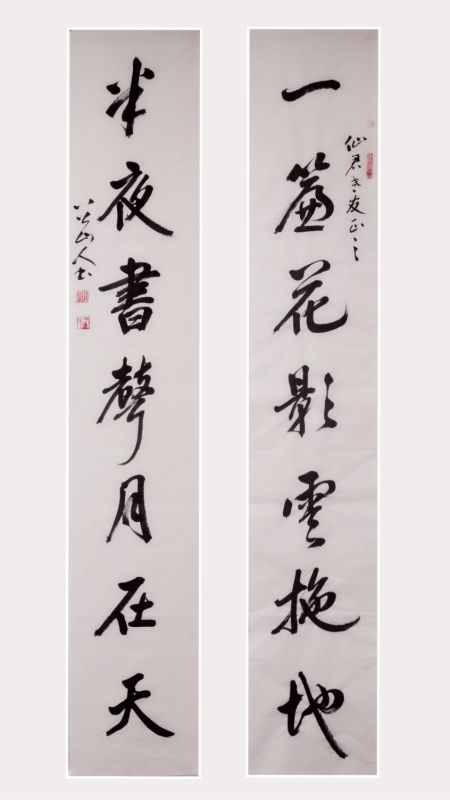 一簾花影雲拖地
仙君老友正之
半夜書聲月在天
八公山人书